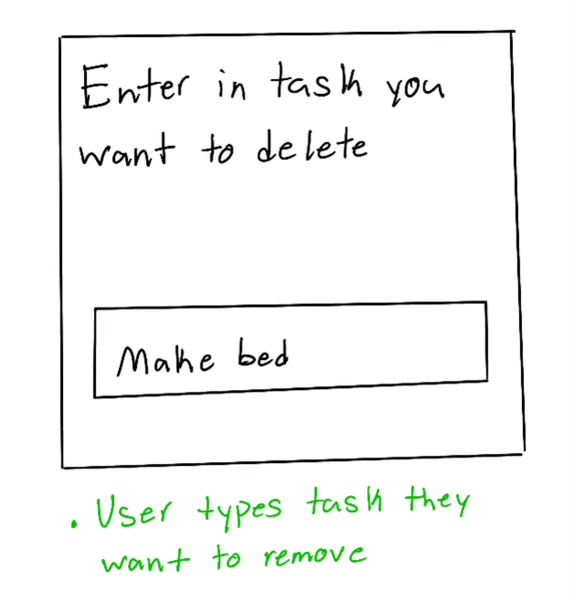 Enter in task you
want to delete
Make bed
. User types task they
want to remove